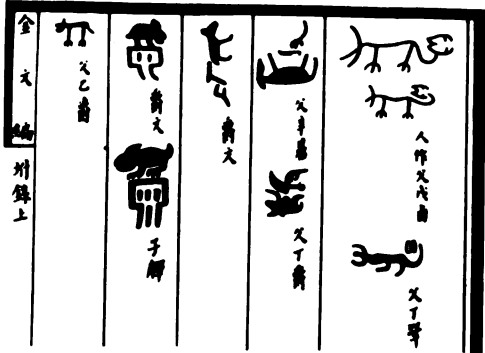 人作父戊卣
父丁
父辛
父丁爵
爵文
爵文
子觶
父乙爵
金文編
坿錄上